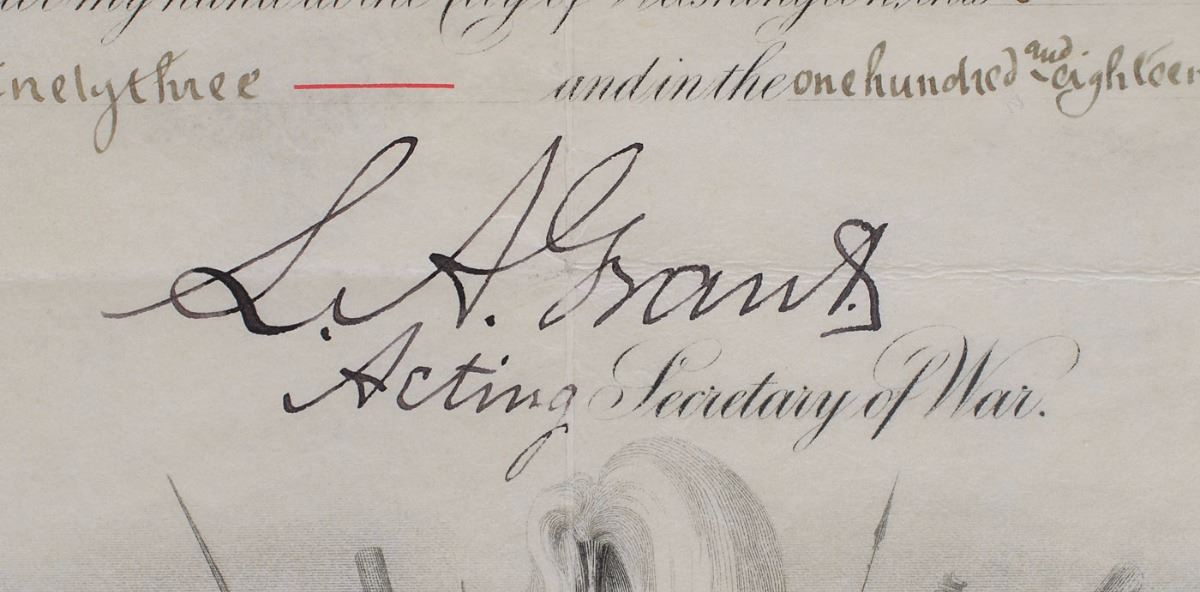 my hand at the City of Washington, this
inety three and in the one hundred and eighteen
L. A. Grant.
Acting Secretary of War.